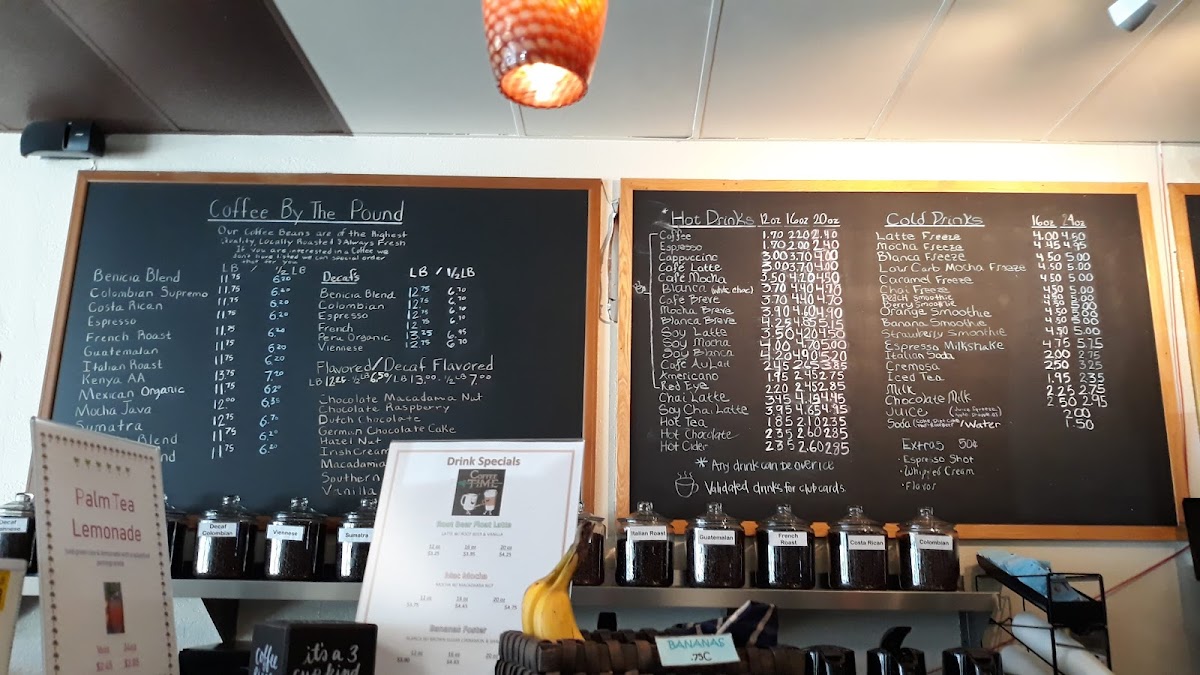 Coffee By The Pound
Our Coffee Beans are of the Highest
Quality, Locally Roasted & Always Fresh
If you are interested in a Coffee we
don't have listed we can special order
that for you
LB / ½ LB
Benicia Blend 11.75 6.20
Colombian Supremo 11.75 6.20
Costa Rican 11.75 6.20
Espresso
French Roast 11.75
Guatemalan 11.75 6.20
Italian Roast 11.75 6.20
Kenya AA 13.75 7.20
Mexican Organic 11.75 6.20
Mocha Java 12.00 6.35
Sumatra 12.75 6.70
Blend 11.75 6.20
nd 11.75 6.20
Decafs LB / ½ LB
Benicia Blend 12.75 6.70
Colombian 12.75 6.70
Espresso 12.75 6.70
French 12.75 6.70
Peru Organic 13.25 6.95
Viennese 12.75 6.70
Flavored/Decaf Flavored
LB 12.25 ½ LB 6.50 / LB 13.00 ½ LB 7.00
Chocolate Macadamia Nut
Chocolate Raspberry
Dutch Chocolate
German Chocolate Cake
Hazel Nut
Irish Cream
Macadamia
Southern
Vanilla
*Hot Drinks 12oz 16oz 20oz
Coffee 1.70 2.20 2.40
Espresso 1.70 2.00 2.40
Cappuccino 3.00 3.70 4.00
Café Latte 3.00 3.70 4.00
Café Mocha 3.50 4.20 4.50
Blanca (white choc) 3.70 4.40 4.70
Café Breve 3.70 4.40 4.70
Mocha Breve 3.90 4.60 4.90
Blanca Breve 4.25 4.85 5.15
Soy Latte 3.50 4.20 4.50
Soy Mocha 4.00 4.70 5.00
Soy Blanca 4.20 4.90 5.20
Café Au Lait 2.45 2.65 3.85
Americano 1.95 2.45 2.75
Red Eye 2.20 2.45 2.85
Chai Latte 3.45 4.15 4.45
Soy Chai Latte 3.95 4.65 4.95
Hot Tea 1.85 2.10 2.35
Hot Chocolate 2.35 2.60 2.85
Hot Cider 2.35 2.60 2.85
* Any drink can be over ice
Validated drinks for club cards
Cold Drinks 16oz 24oz
Latte Freeze 4.00 4.50
Mocha Freeze 4.45 4.95
Blanca Freeze 4.50 5.00
Low Carb Mocha Freeze 4.50 5.00
Caramel Freeze 4.50 5.00
Chai Freeze 4.50 5.00
Peach Smoothie 4.50 5.00
Berry Smoothie 4.50 5.00
Orange Smoothie 4.50 5.00
Banana Smoothie 4.50 5.00
Strawberry Smoothie 4.50 5.00
Espresso Milkshake 4.75 5.75
Italian Soda 2.00 2.75
Cremosa 2.50 3.25
Iced Tea 1.95 2.35
Milk 2.25 2.75
Chocolate Milk 2.50 2.95
Juice 2.00
Soda /Water 1.50
Extras 50¢
• Espresso Shot
• Whipped Cream
• Flavor
Decaf
Decaf Colombian
Viennese
Sumatra
Italian Roast
Guatemalan
French Roast
Costa Rican
Colombian
Palm Tea
Lemonade
16oz 24oz
Drink Specials
COFFEE
TIME
Root Beer Float Latte
LATTE W/ ROOT BEER & VANILLA
12 oz 16 oz 20 oz
Mac Mocha
MOCHA W/ MACADAMIA NUT
12 oz 16 oz 20 oz
$3.75 $4.45 $4.75
Bananas Foster
BANANAS
.75¢
coffee
it's a 3
cup kind